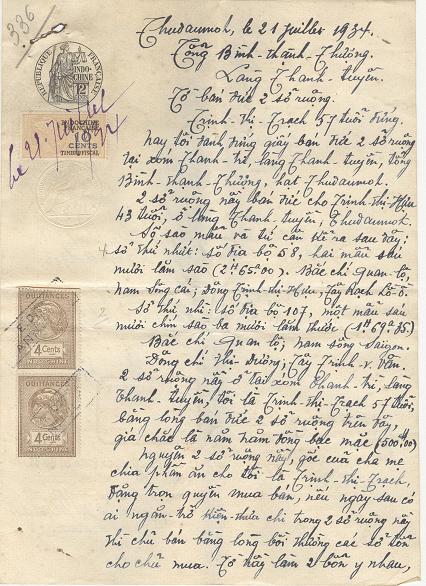 336
RÉPUBLIQUE FRANÇAISE
INDO-CHINE
12
INDOCHINE FRANÇAISE
CENTS
TIMBRE FISCAL
Thudaumot, le 21 juillet 1934.
Tổng Bình-thành-Thượng.
Làng Thanh-tuyền.
Tờ bán đức 2 sở ruộng.
Trịnh-thị-Trạch 57 tuổi đứng.
nay tôi đành đứng giấy bán đức 2 sở ruộng
tại xóm Thanh-trì, làng Thanh-tuyền, tổng
Bình-thanh-Thượng, hạt Thudaumot.
2 sở ruộng này bán đức cho Trịnh-thị-Hựu
43 tuổi, ở làng Thanh-tuyền, Thudaumot.
Số sao mẫu và tứ cận kê ra sau đây;
số thứ nhứt: số địa bộ 58, hai mẫu sáu
mười lăm sào (2H65a00). Bắc chí Quan-lộ,
nam Sông cái; Đông Trịnh-thị-Hựu; Tây Rạch
Số thứ nhì: số địa bộ 107, một mẫu sáu
mười chín sào ba mươi lăm thước (1H69a35)
Bắc chí Quan lộ; nam sông Saigon.
Đông chí Thị-Dưỡng; Tây Trịnh-v.
2 sở ruộng này ở tại xóm Thanh-trì, làng
Thanh-tuyền, tôi là Trịnh-thị-Trạch 57 tuổi,
bằng lòng bán đức 2 sở ruộng trên đây,
giá chắc là năm trăm đồng bạc mặc (500$00)
nguyên 2 sở ruộng này, gốc của cha mẹ
chia phần ăn cho tôi là Trịnh-thị-Trạch,
đặng trọn quyền mua bán, nếu ngày sau có
ai ngăn-trở kiện-thưa chi trong 2 sở ruộng này
thì chủ bán bằng lòng bồi thường các số tổn
cho chủ mua. Tờ này làm 2 bổn y nhau,
QUITTANCES
4 Cents
INDO-CHINE
QUITTANCES
4 Cents
INDO-CHINE